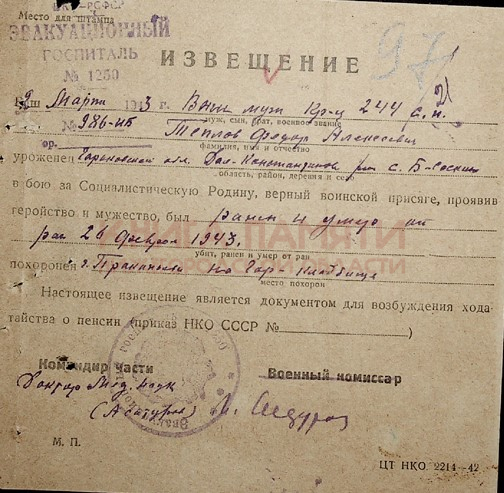 НКЗ-РСФСР
Место для штампа
ЭВАКУАЦИОННЫЙ
ГОСПИТАЛЬ
№ 1250
97
ИЗВЕЩЕНИЕ
9 Марта 1943 г. Ваш муж Кр-ц 244 с.п.
муж, сын, брат, военное звание
№ 386-нб Теплов Федор Алексеевич
фамилия, имя и отчество
ор.
уроженец Горьковской обл. Дал-Константинов с. Б-Сескин
область, район, деревня и село
в бою за Социалистическую Родину, верный воинской присяге, проявив
геройство и мужество, был ранен и умер от
ран 26 февраля 1943.
убит, ранен и умер от ран
похоронен г. на Гор. кладбище
место похорон
Настоящее извещение является документом для возбуждения хода-
тайства о пенсии (приказ НКО СССР №)
Командир части
Военный комиссар
Доктор Мед. наук
М. П.
ЦТ НКО 2214—42
КНИГА ПАМЯТИ
НИЖЕГОРОДСКОЙ ОБЛАСТИ